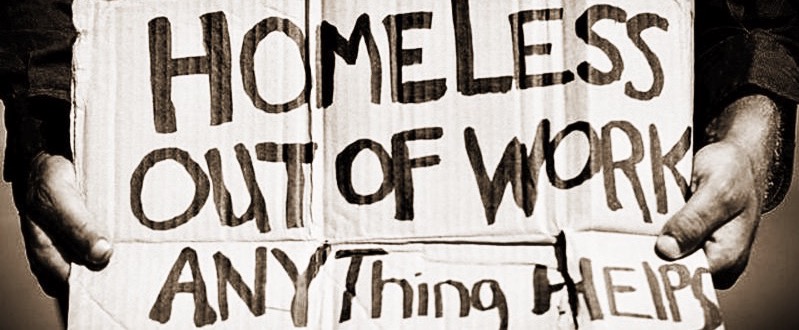 HOMELESS
OUT OF WORK
ANYThing HElPS